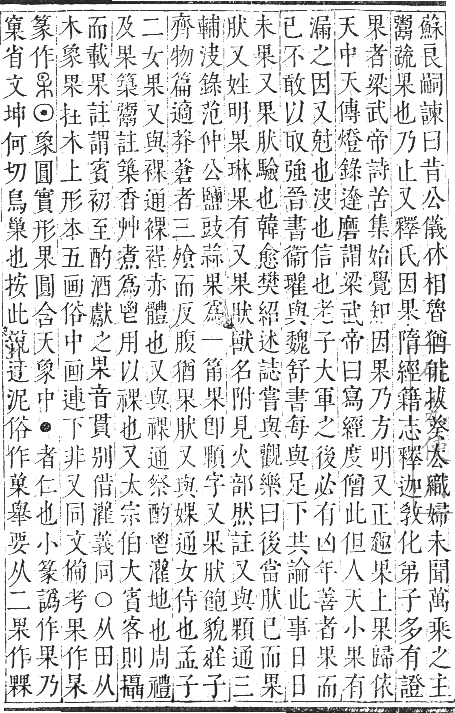 蘇良嗣諫曰昔公儀休相魯猶能拔葵去織婦未聞萬乘之主
鬻蔬果也乃止又釋氏因果隋經籍志釋迦敎化弟子多有證
果者梁武帝詩苦集始覺知因果乃方明又正趣果上果歸依
天中天傳燈錄達磨謂梁武帝曰寫經度僧此但人天小果有
漏之因又尅也决也信也老子大軍之後必有凶年善者果而
已不敢以取強晉書衞瓘與魏舒書每與足下共論此事日日
未果又果然驗也韓愈樊紹述誌嘗與觀樂曰後當然已而果
然又姓明果琳果有又果然獸名附見火部然註又與顆通三
輔决錄范仲公鹽豉蒜果爲一筩果卽顆字又果然飽貌莊子
齊物篇適莽蒼者三飱而反腹猶果然又與婐通女侍也孟子
二女果又與裸通裸裎赤體也又與祼通祭酌鬯灌地也周禮
及果築鬻註築香艸煮爲鬯用以祼也又太宗伯大賓客則攝
而載果註謂賓初至酌酒獻之果音貫别作灌義同〇从田从
木象果在木上形本五画俗中画連下非又同文備考果作杲
篆作⊙象圓實形果圓合天象中●者仁也小篆譌作果乃
窠省文坤何切鳥巢也按此說过泥俗作菓舉要从二果作粿